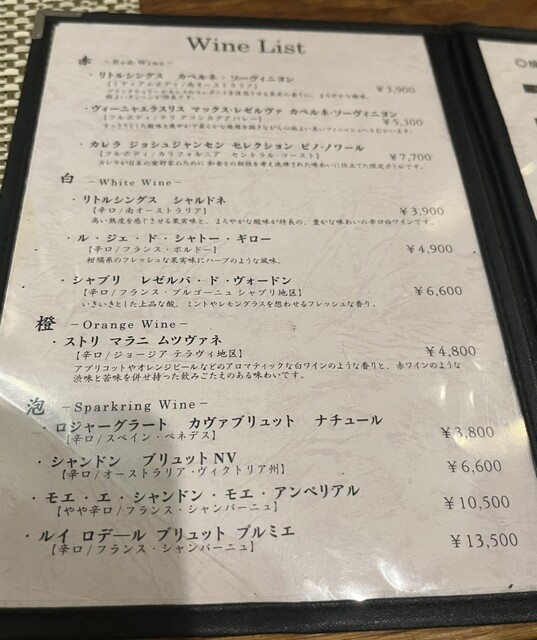 Wine List
赤 －Red Wine－
・リトルシングス カベルネ・ソーヴィニヨン
【ミディアムボディ/南オーストラリア】
¥3,900
・ヴィーニャエラスリス マックス・レゼルヴァ カベルネ・ソーヴィニヨン
【フルボディ/チリ アコンカグアバレー】
¥5,300
・カレラ ジョシュジャンセン セレクション ピノ・ノワール
【フルボディ/カリフォルニア セントラル・コースト】
¥7,700
カレラが日本の愛好家のために 和食との相性を考え洗練された味わいに仕立てた限定ボトルです。
白 －White Wine－
・リトルシングス シャルドネ
【辛口/南オーストラリア】
¥3,900
高い熟度を感じさせる果実味と、まろやかな酸味が特長の、豊かな味わいの辛口白ワインです。
・ル・ジェ・ド・シャトー・ギロー
【辛口/フランス・ボルドー】
¥4,900
柑橘系のフレッシュな果実味にハーブのような風味。
・シャブリ レゼルバ・ド・ヴォードン
【辛口/フランス・ブルゴーニュ シャブリ地区】
¥6,600
いきいきとした上品な酸、ミントやレモングラスを想わせるフレッシュな香り。
橙 －Orange Wine－
・ストリ マラニ ムツヴァネ
【辛口/ジョージア テラヴィ地区】
¥4,800
アプリコットやオレンジピールなどのアロマティックな白ワインのような香りと、赤ワインのような
渋味と苦味を併せ持った飲みごたえのある味わいです。
泡 －Sparkring Wine－
・ロジャーグラート カヴァブリュット ナチュール
【辛口/スペイン・ペネデス】
¥3,800
・シャンドン ブリュットNV
【辛口/オーストラリア・ヴィクトリア州】
¥6,600
・モエ・エ・シャンドン・モエ・アンペリアル
【やや辛口/フランス・シャンパーニュ】
¥10,500
・ルイ ロデール ブリュット プルミエ
【辛口/フランス・シャンパーニュ】
¥13,500